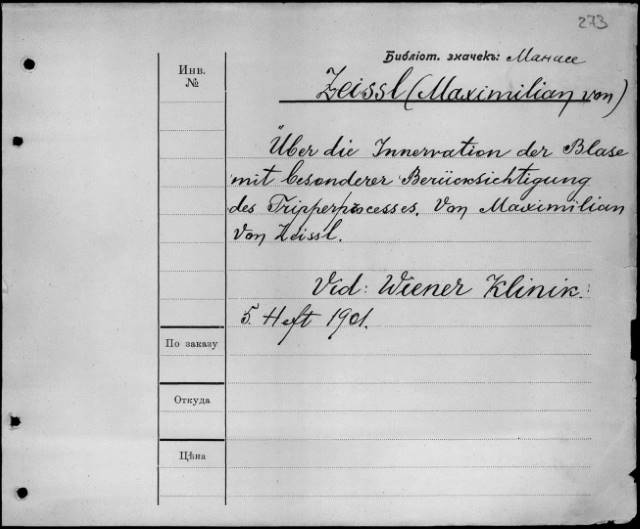 273
Библіот. значекъ: Манасе
Инв.
№
Zeissl (Maximilian von)
Über die Innervation der Blase
mit besonderer Berücksichtigung
des Tripperprocesses. Von Maximilian
von Zeissl.
Vid: Wiener Klinik:
5. Heft 1901.
По заказу
Откуда
Цѣна